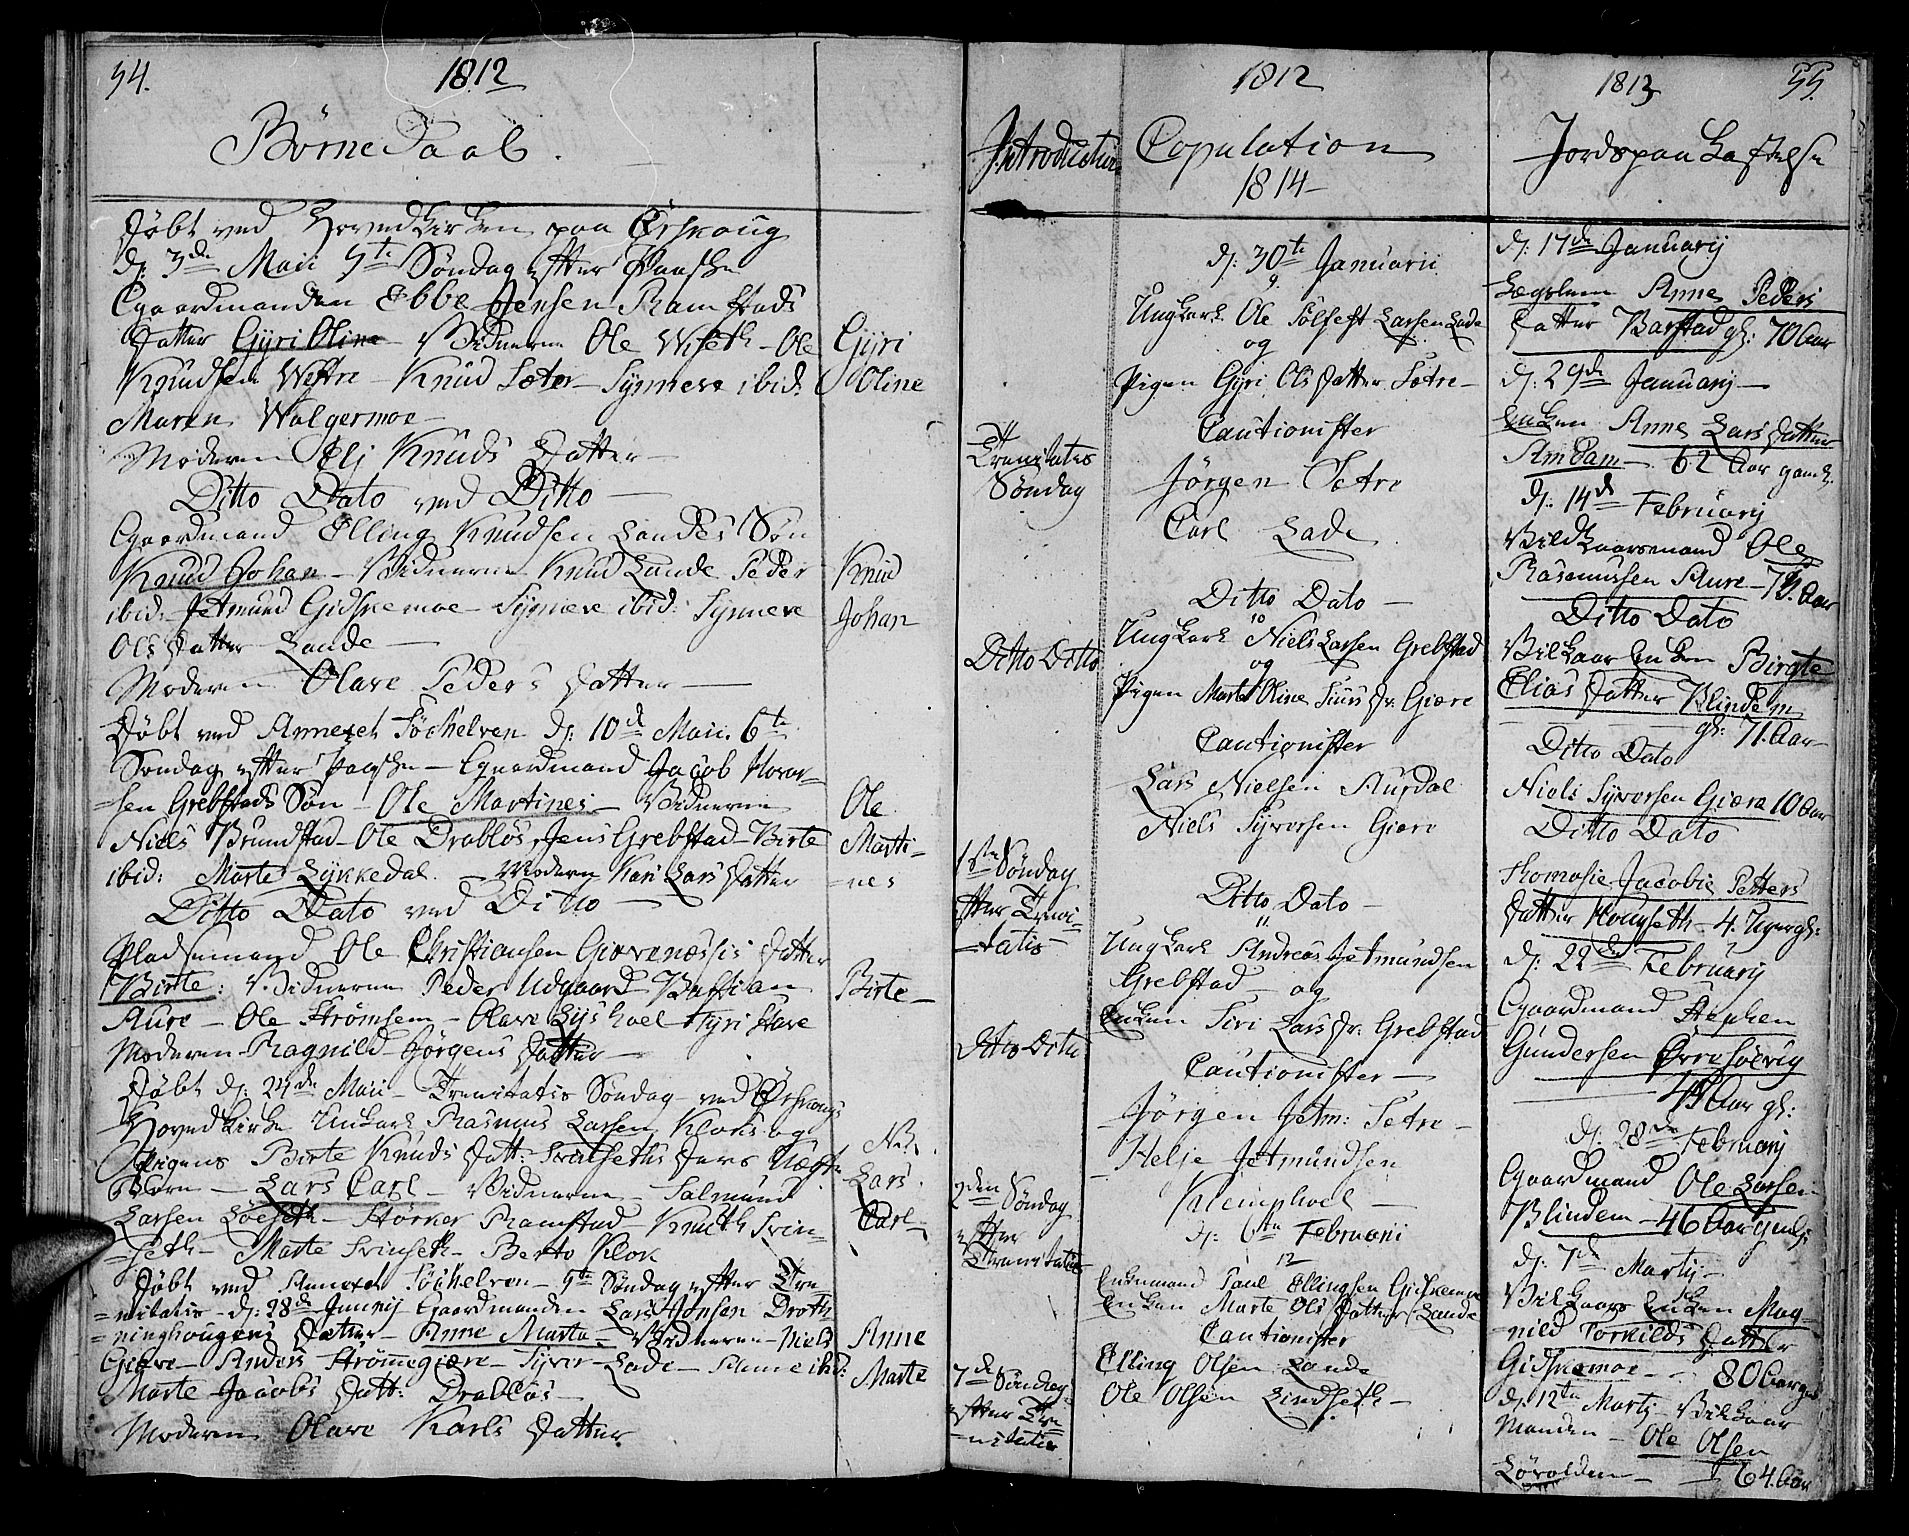 54.
1812
Børne Daab.
Døbt ved Hovedkirken paa Ørskoug
d: 3de Maii 5te Søndag efter Paaske
Gaardmanden Ebbe Jensen Ramstads
Datter Gyri Oline Vidnerne Ole Wiseth - Ole
Knudsen Westre - Knud Sæter - Synneve ibid:
Maren Walgermoe -
Moderen Elj Knuds Datter -
Gyri
Oline
Ditto Dato ved Ditto -
Gaardmand Elling Knudsen Landes Søn
Knud Johan - Vidnerne Knud Lande Peder
ibid: Jetmund Gidskemoe - Synneve ibid: Synneve
Ols Datter Lande -
Moderen Olave Peders Datter -
Knud
Johan
Døbt ved Annexet Søchelven d: 10de Maii 6te
Søndag efter Paaske - Gaardmand Jacob Hovor-
-sen Grebstads Søn - Ole Martines - Vidnerne
Niels Brundstad - Ole Drabløs, Jens Grebstad - Birte
ibid: Marte Lykkedal. - Moderen Kari Lars Datter
Ole
Marti-
-nes
Ditto Dato ved Ditto -
Pladsemand Ole Christiansen Giævenæssis Datter
Birte: Vidnerne Peder Udgaard Bastian
Aure - Ole Strømsem - Olave Lyshoel Gyri Stave
Moderen - Ragnild Jørgens Datter -
Birte -
Døbt d: 24de Maii - Trinitatis Søndag - ved Ørskougs
Hovedkirke Unkarl Rasmus Larsen Kloks og
Pigens Birte Knuds Datt: Svinseths Deres Uægte
Børn - Lars Carl - Vidnerne - Salmund
Larsen Løeseth - Størker Ramstad - Knuth Svin-
-seth - Marte Svinseth - Berte Klok
Lars
Carl -
Døbt ved Annexet Søchelven - 5te Søndag efter Tri-
=nitatis - d: 28de Junij Gaardmanden Lars Jonsen Droth
=ninghougens Datter - Anne Marta - Vidnerne - Niels
Giære - Anders Strømmegiære - Syver Lade - Anne ibid:
Marte Jacobs Datt: Drabløs -
Moderen Olave Karls Datter
Anne
Marte
Introduction
Trinitatis
Søndag
Ditto Ditto
1ste Søndag
efter Trini-
-tatis -
Ditto Ditto
2den Søndag
efter
Trinitatis
7de Søndag
efter Tri-
-nitatis
1812
Copulation
1814 -
d: 30te Januarii
9
Ungkarl Ole Solfest Larsen Lade
og
Pigen Gyri Ols Datter Sætre -
Cautionister
Jørgen Setre
Carl Lade
Ditto Dato -
10
Ungkarl Niels Larsen Grebstad
og
Pigen Marte Oline Siurs Dr. Giære
Cautionister
Lars Nielsen Aurdal
Niels Syvorsen Giære
Ditto Dato -
11
Ungkarl Andreas Jetmundsen
Grebstad - og
Enken Siri Lars Dr. Grebstad
Cautionister -
Jørgen Jetm: Setre -
Helje Jetmundsen
Klemphoel -
d: 6te Februarii
12
Enkemand Paul Ellingsen Gidskemoe
Enken Marte Ols Datter Lande
Cautionister
Elling Olsen Lande
Ole Olsen Lindseth -
1813
55.
Jordspaakastelse
d: 17de Januarij
Lægslem Anne Peders
Datter Barstad gl: 70 Aar
d: 29de Januarij -
Enken Anne Lars Datter
Amdam - 62 Aar gaml.
d: 14de Februarij
Vilkaarsmand Ole
Rasmussen Aure - 73. Aar
Ditto Dato
Vilkaar Enken Birgte
Elias Datter Blindem
gl: 71. Aar -
Ditto Dato
Niels Syvorsen Giære 10 Aar
Ditto Dato
Thomasie Jacobie Petters
Datter Hougseth - 4. Uger gl:
d: 22de Februarij
Gaardmand Stephen
Gundersen Ørresølvig
49 Aar gl:
d: 28de Februarij
Gaardmand Ole Larsen
Blindem - 46 Aar gml:
d: 7de Martij -
Vilkaars Enken Mag-
-nild Torkilds Datter
Gidskemoe - 80 Aar gml
d: 12te Martij Vilkaar
Manden - Ole Olsen
Løvolden - 64. Aar